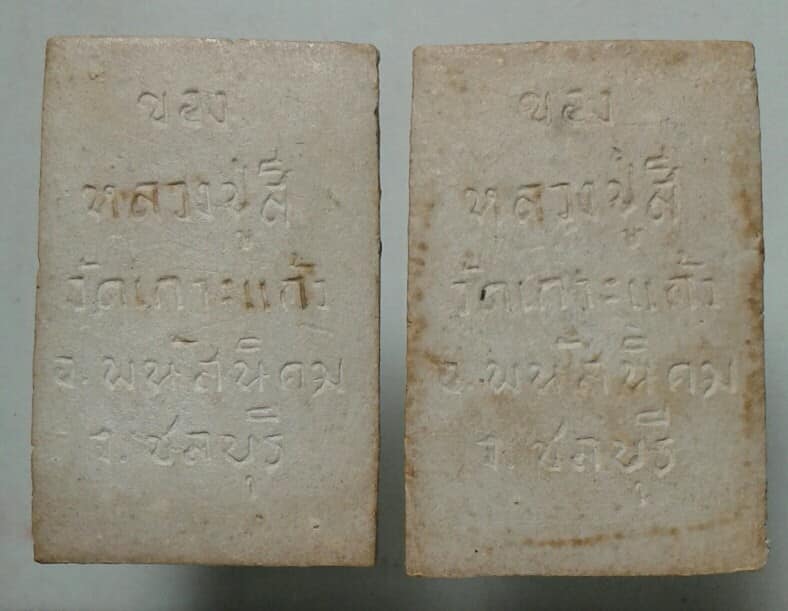 ของ
หลวงปู่สี
วัดเกาะแก้ว
อ.พนัสนิคม
จ.ชลบุรี
ของ
หลวงปู่สี
วัดเกาะแก้ว
อ.พนัสนิคม
จ.ชลบุรี